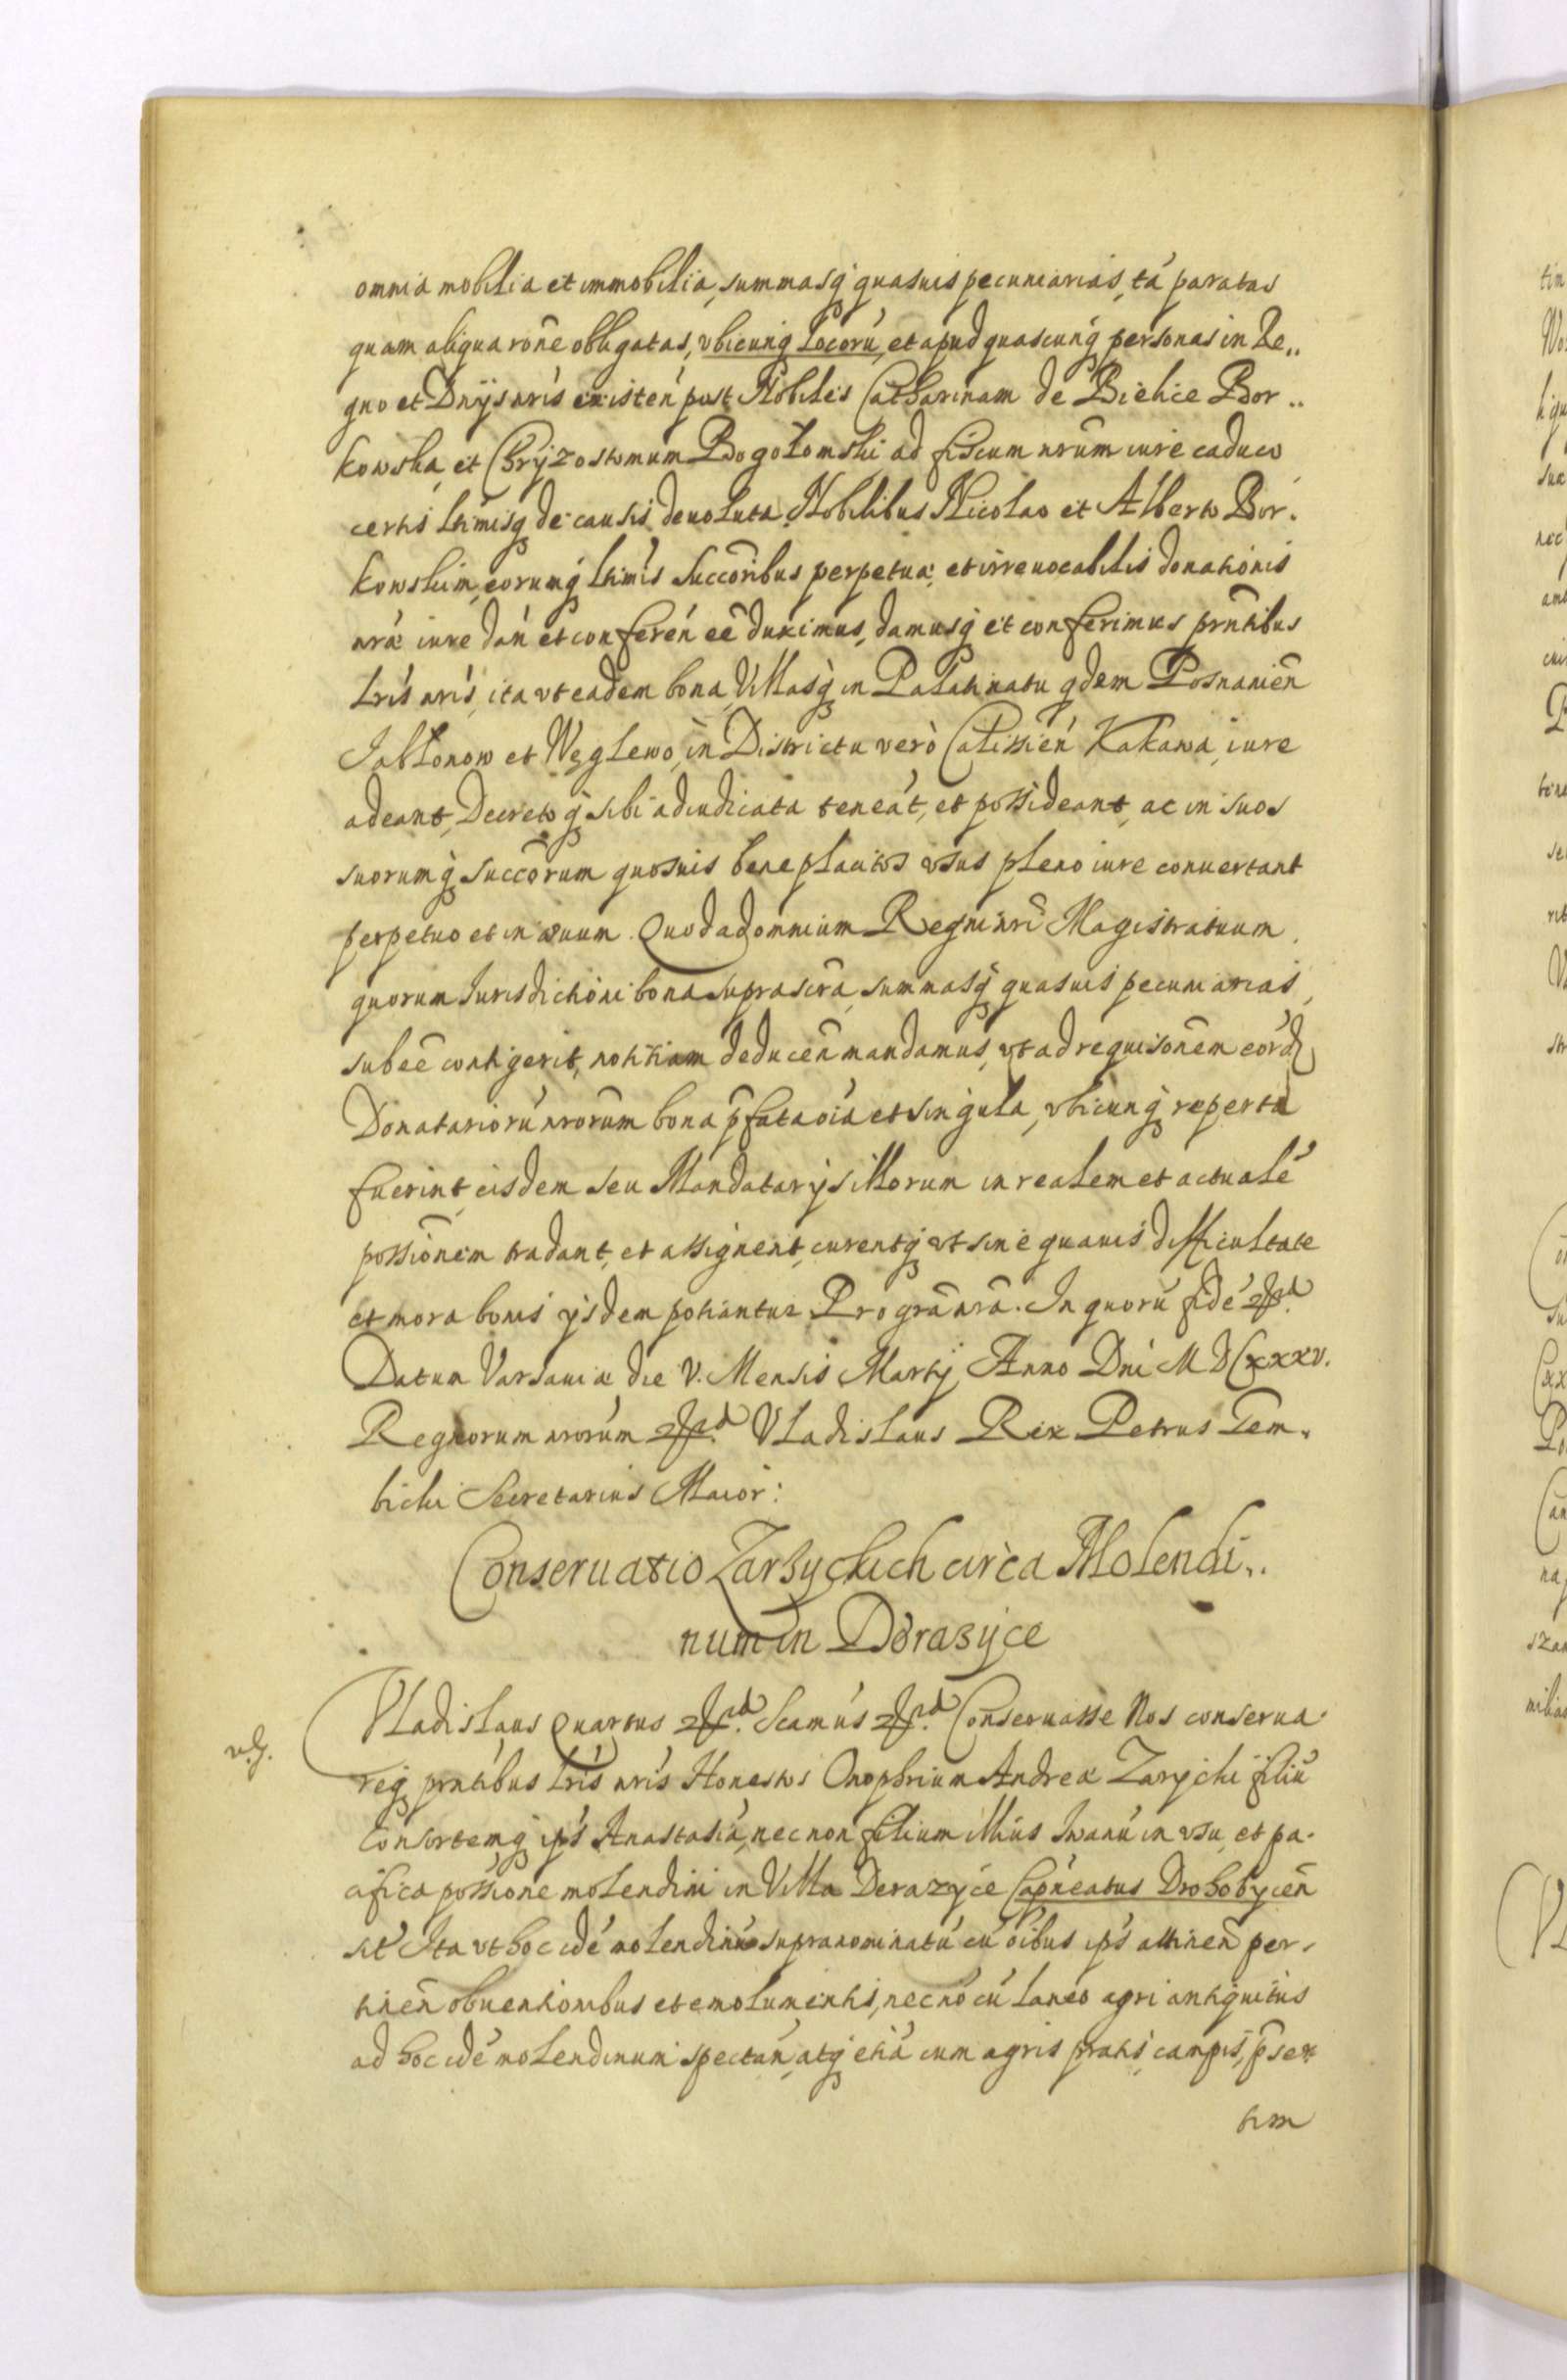 omnia mobilia et immobilia, summasq̃ quasuis pecuniarias, tá paratas
quam aliqua rõne obligatas, vbicunq̃ Locorú, et apud quascunq̃ personas in Re..
gno et Dnijs nrís existen̄ post Nobiles Catharinam de Bielice Bor..
kowska, et Chryzostomum Bogolomski ad fiscum nrum iure caduco
certis Ltimisq̃ de causis deuoluta. Nobilibus Nicolao et Alberto Bor.
kowskim, eorumq̃ Ltimis Succoribus perpetuæ et irreuocabilis donationis
nræ iure dan̄ et conferen̄ eē duximus, damusq̃ et conferimus prntibus
Lrís nrís, ita vt eadem bona, Villasq̃ in Palatinatu qdem Posnanien̄
Jablonow et Węglewo, in Districtu verò Calissien̄ Kakawa, iure
adeant, Decretoq̃ sibi adiudicata teneát, et possideant, ac in suos
suorumq̃ succorum quosuis beneplacitos vsus pleno iure conuertant
perpetuo et in æuum. Quod ad omnium Regni nri Magistratuum
quorum Iurisdictioni bona suprascra, summasq̃ quasuis pecuniarias,
subeē contigerit, notitiam deducen̄ mandamus, vt ad requisonem eord̃
Donatariorú nrorum bona p̄fata oía et singula, vbicunq̃ reperta
fuerint, eisdem seu Mandatarijs illorum in realem et actualé
possionem tradant, et assignent, curentq̃ vt sine quauis difficultate
et mora bonis ijsdem potiantur Pro grã nrã. In quorú fidé
Datum Varsauiæ die V. Mensis Martij Anno Dni M D C xxxv.
Regnorum nrorum Vladislaus Rex Petrus Gem.
bicki Secretarius Maior:
Conseruatio Zarzyckich circa Molendi..
num in Dorazyce
Vladislaus Quartus Scamus Conseruasse Nos conserua.
req̃ prntibus Lrís nrís Honestos Onophrium Andreæ Zarycki filiú
Consortemq̃ ips Anastasiá, nec non filium illius Iwanú in vsu, et pa.
cifica possione molendini in Villa Derazyce Capneatus Drohobycen̄
sit Ita vt hoc idé molendinú supranominatú cú oibus ips attinen̄ per,
tinen̄ obuentionibus et emolumentis, necnó cú Laneo agri antiquitus
ad hoc idé molendinum spectan̄, atq̃ etiá cum agris pratis, campis, p̄ser
tim